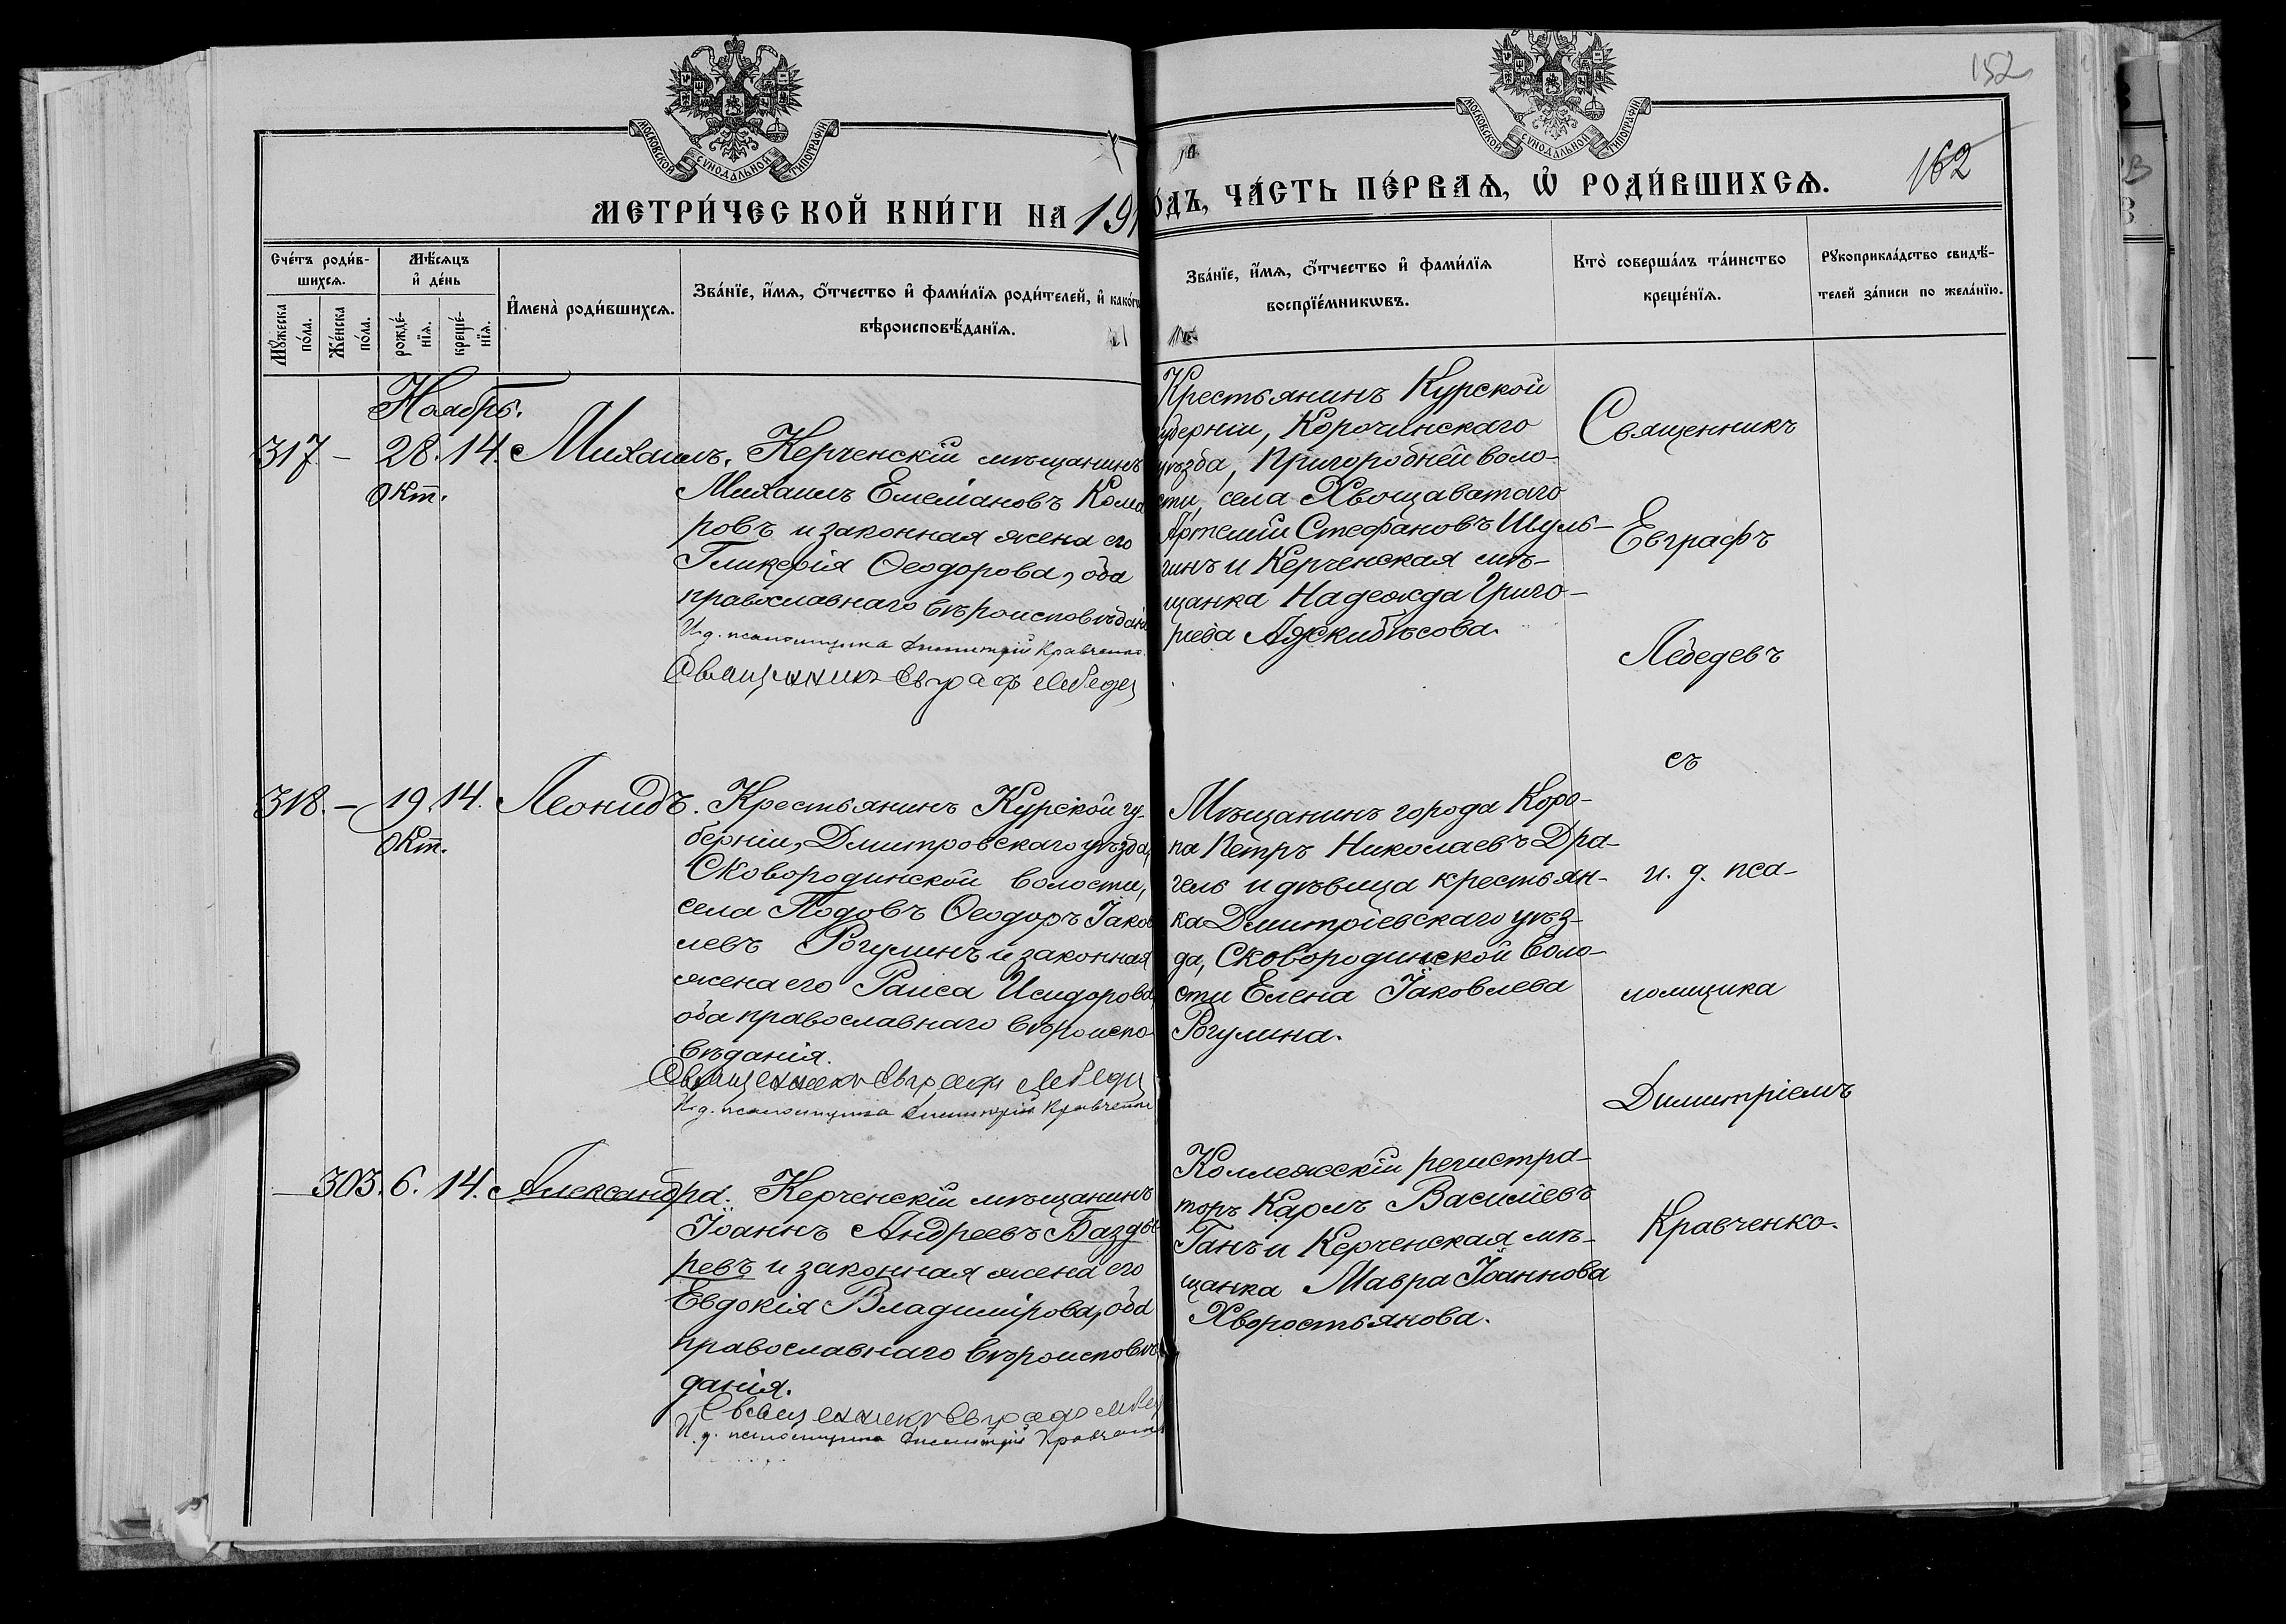 152
МОСКОВСКОЙ СѴНОДАЛЬНОЙ ТИПОГРАФІИ
МОСКОВСКОЙ СѴНОДАЛЬНОЙ ТИПОГРАФІИ
МЕТРИ́ЧЕСКОЙ КНИ́ГИ НА 191
О́ДЪ, ЧА́СТЬ ПЕ́РВАѦ, Ѡ҆ РОДИ́ВШИХСѦ.
162
Сче́тъ роди́в-
шихсѧ.
Мѣ́сѧцъ
и҆ де́нь
Мꙋ́жеска
по́ла.
Же́нска
по́ла.
рожде́-
нїѧ.
креще́-
нїѧ.
И҆мена̀ роди́вшихсѧ.
Зва́нїе, и҆́мѧ, ѻ҆́тчество и҆ фами́лїѧ роди́телей, и҆ како́гѡ
вѣроисповѣ́данїѧ.
Зва́нїе, и҆́мѧ, ѻ҆́тчество и҆ фами́лїѧ
воспрїе́мникѡвъ.
Кто̀ соверша́лъ та́инство
креще́нїѧ.
Рꙋкоприкла́дство свидѣ́-
телей за́писи по жела́нїю.
Ноябрь.
317. – 28. 14. Михаилъ. Керченскій мѣщанинъ
Окт.
Михаилъ Емеліановъ Кома
ровъ и законная жена его
Гликерія Ѳеодорова, оба
православнаго вѣроисповѣдан
И. д. псаломщика Димитрій Кравченко.
Священникъ Евграфъ Лебеде
Крестьянинъ Курской
губерніи, Корочинскаго
уѣзда, Пригородней воло-
сти, села Хвощаватаго
Артемій Стефановъ Шуль-
гинъ и Керченская мѣ-
щанка Надежда Григо-
рьева Аджибѣсова.
Священникъ
Евграфъ
Лебедевъ
съ
и. д. пса-
ломщика
Димитріемъ
Кравченко.
318. – 19. 14. Леонидъ. Крестьянинъ Курской гу-
Окт.
берніи, Дмитровскаго уѣзда,
Сковородинской волости,
села Подовъ Ѳеодоръ Іаков
левъ Рогулинъ и законная
жена его Раиса Исидорова,
оба православнаго вѣроиспо-
вѣданія.
Священникъ Евграфъ Лебеде
И. д. псаломщика Димитрій Кравченко
Мѣщанинъ города Коро-
па Петръ Николаевъ Дра-
гель и дѣвица крестьян-
ка Дмитріевскаго уѣз-
да, Сковородинской воло-
сти Елена Іаковлева
Рогулина.
– 303. 6. 14. Александра. Керченскій мѣщанинъ
Іоаннъ Андреевъ Базды-
ревъ и законная жена его
Евдокія Владимірова, оба
православнаго вѣроисповѣ
данія.
Священникъ Евграфъ Лебед
И. д. псаломщика Димитрій Кравченко
Коллежскій регистра-
торъ Карлъ Василіевъ
Ганъ и Керченская мѣ-
щанка Мавра Іоаннова
Хворостьянова.